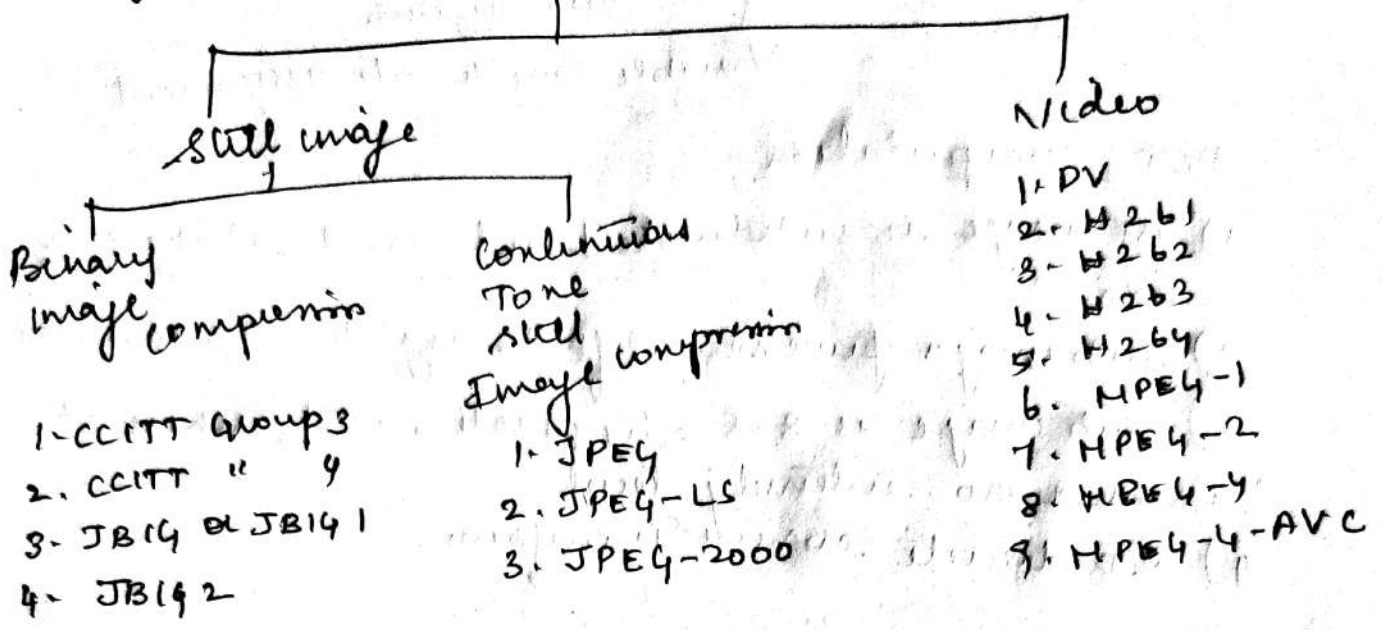 Still image
Video
Binary
image compression
1. CCITT Group 3
2. CCITT " 4
3. JBIG or JBIG 1
4. JBIG 2
Continuous
Tone
still
Image compression
1. JPEG
2. JPEG-LS
3. JPEG-2000
1. DV
2. H 261
3. H 262
4. H 263
5. H 264
6. MPEG-1
7. MPEG-2
8. MPEG-4
9. MPEG-4-AVC